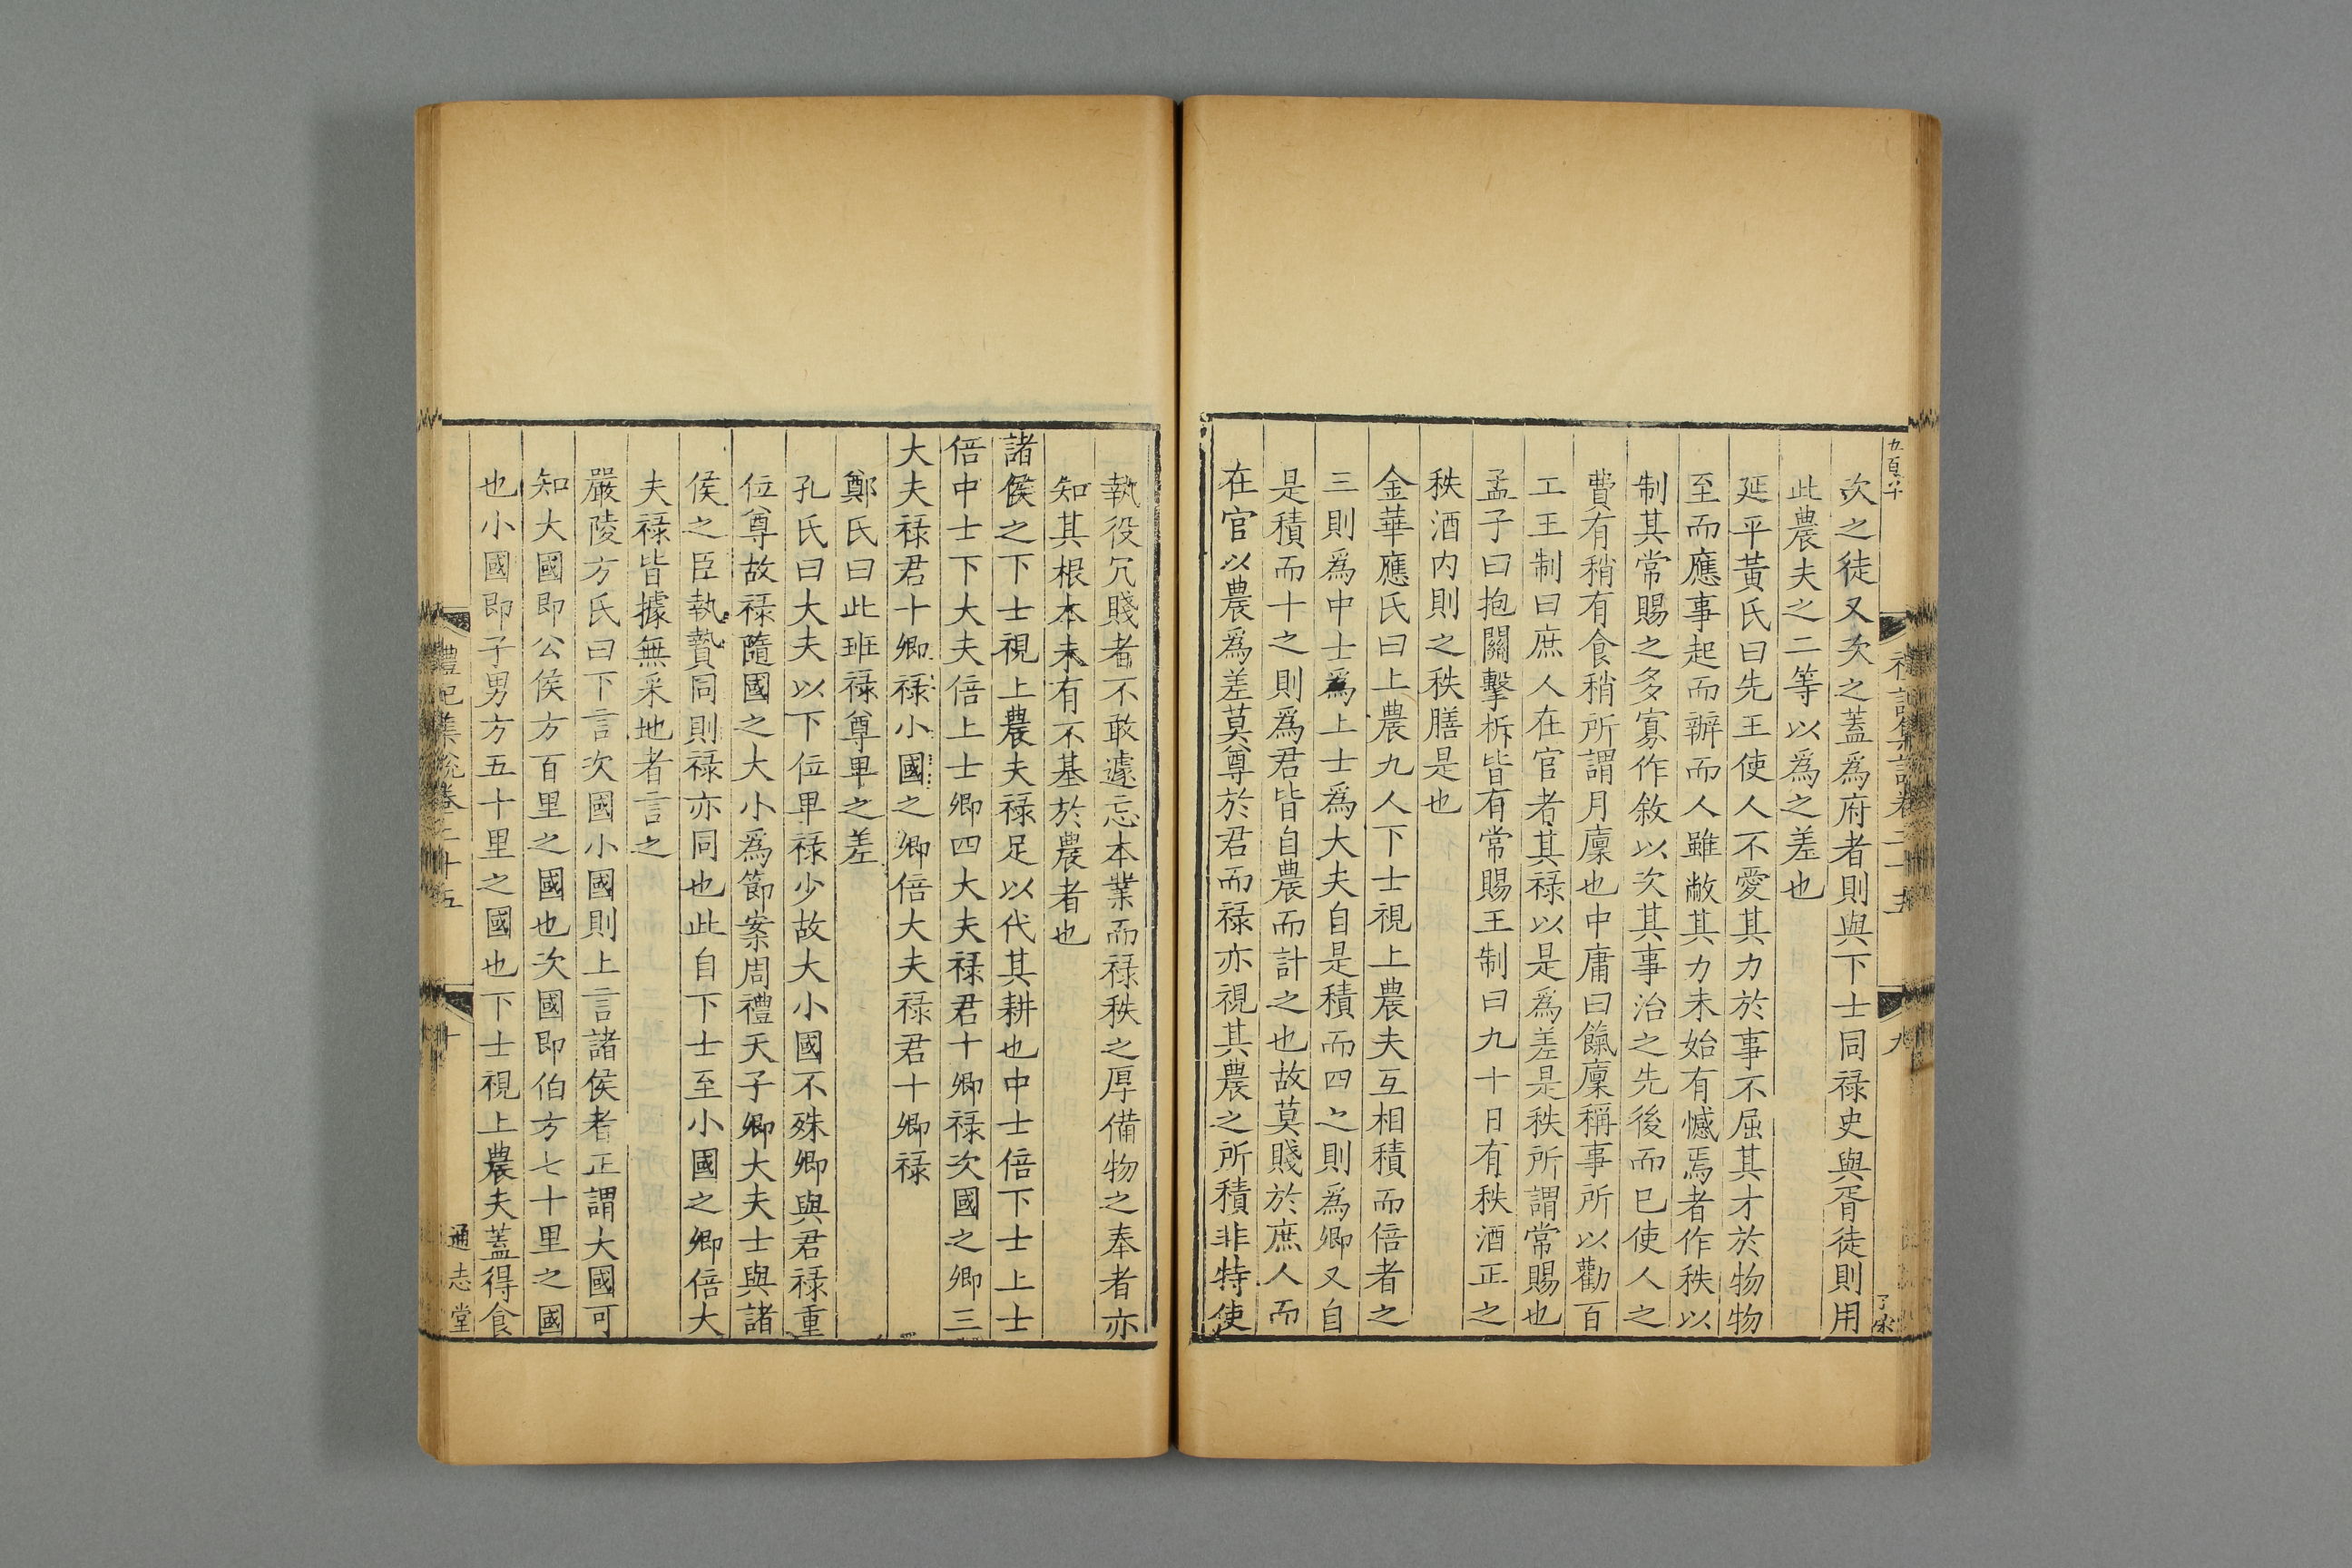 五百
禮記集說卷二十五
九
次之徒又次之蓋爲府者則與下士同禄史與胥徒則用
此農夫之二等以爲之差也
延平黃氏曰先王使人不愛其力於事不屈其才於物物
至而應事起而辦而人雖敝其力未始有憾焉者作秩以
制其常賜之多寡作敘以次其事治之先後而已使人之
費有稍有食稍所謂月廩也中庸曰餼廩稱事所以勸百
工王制曰庶人在官者其禄以是爲差是秩所謂常賜也
孟子曰抱關擊柝皆有常賜王制曰九十日有秩酒正之
秩酒内則之秩膳是也
金華應氏曰上農九人下士視上農夫互相積而倍者之
三則爲中士爲上士爲大夫自是積而四之則爲卿又自
是積而十之則爲君皆自農而計之也故莫賤於庶人而
在官以農爲差莫尊於君而禄亦視其農之所積非特使
執役冗賤者不敢遽忘本業而禄秩之厚備物之奉者亦
知其根本未有不基於農者也
諸侯之下士視上農夫禄足以代其耕也中士倍下士上士
倍中士下大夫倍上士卿四大夫禄君十卿禄次國之卿三
大夫禄君十卿禄小國之卿倍大夫禄君十卿禄
鄭氏曰此班禄尊卑之差
孔氏曰大夫以下位卑禄少故大小國不殊卿與君禄重
位尊故禄隨國之大小爲節案周禮天子卿大夫士與諸
侯之臣執贄同則禄亦同也此自下士至小國之卿倍大
夫禄皆據無采地者言之
嚴陵方氏曰下言次國小國則上言諸侯者正謂大國可
知大國即公侯方百里之國也次國即伯方七十里之國
也小國即子男方五十里之國也下士視上農夫蓋得食
禮記集說卷二十五
十
通志堂